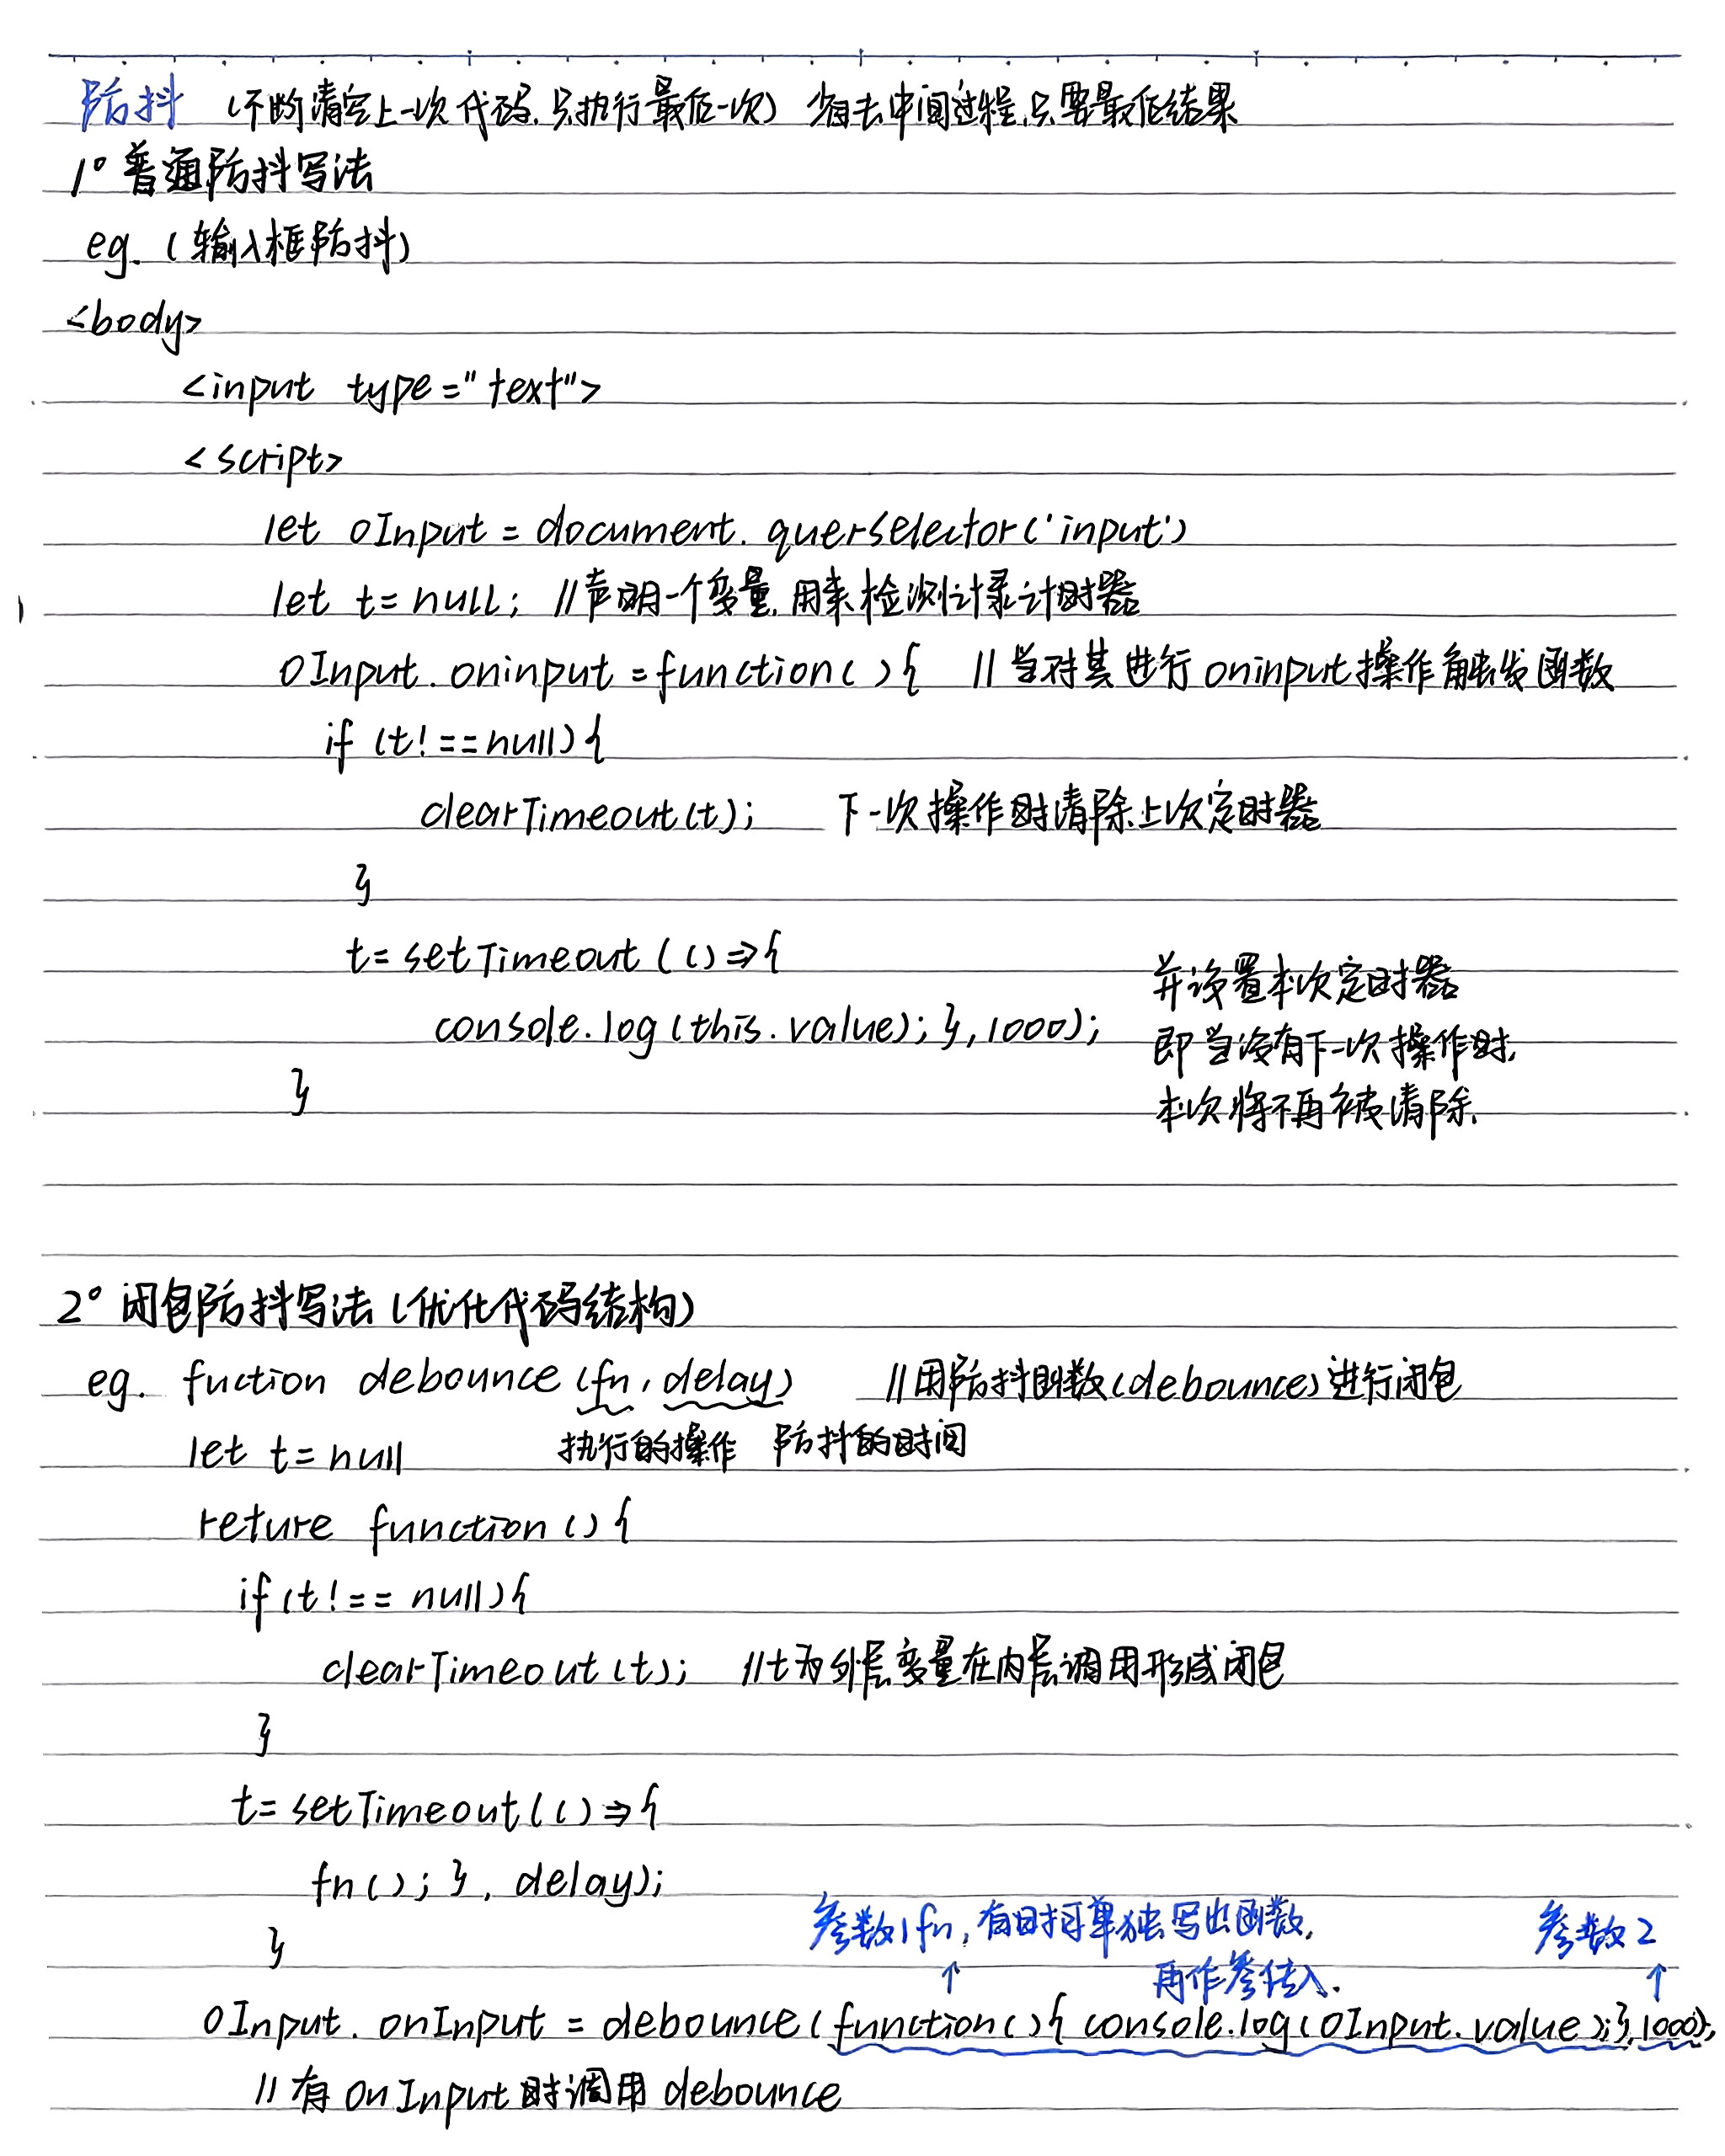 防抖 (不断清空上一次代码,只执行最后一次) 省去中间过程,只要最后结果
1° 普通防抖写法
eg. (输入框防抖)
<body>
<input type="text">
<script>
let oInput = document. querselector('input')
let t= null; //声明一个变量,用来检测计录计时器
oInput. oninput =function( ){ // 当对其进行 oninput操作触发函数
if (t!==null){
clearTimeout(t); 下一次操作时清除上次定时器
}
t= setTimeout ( ()=>{
并设置本次定时器
console.log (this. value); }, 1000);
即当没有下一次操作时,
}
本次将不再被清除.
2° 闭包防抖写法 (优化代码结构)
eg. fuction debounce (fn, delay) //用防抖函数(debounce)进行闭包
let t= null 执行的操作 防抖的时间
reture function (){
if(t!== null){
clearTimeout (t); //t为外层变量在内层调用形成闭包
}
t= setTimeout( ()=>{
fn( ); }, delay);
参数1 fn, 有时可单独写出函数, 参数2
}
↑ 再作参传入. ↑
oInput. onInput = debounce (function( ){ console.log (oInput. value );},1000);
// 有 onInput 时调用 debounce